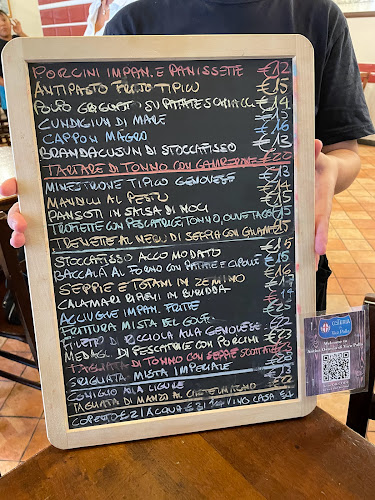 PORCINI IMPAN. E PANISSETTE €12
ANTIPASTO FRITO TIPICO €15
POLPO GRIGLIATO SU PATATE SCHIACC. €14
CUNDIGIUN DI MARE
CAPPON MAGRO €16
BRANDACUJUN DI STOCCAFISSO €13
TARTARE DI TONNO CON €20
MINESTRONE TIPICO GENOVESE €13
MANDILLI AL PESTO €14
PANSOTI IN SALSA DI NOCI €15
TROFIETTE CON PESCATRICE TONNO, OLIVE TAGG.
TRENETTE AL NERO DI SEPPIA CON CALAMARI
STOCCAFISSO ACCOMODATO
BACCALÀ AL FORNO CON PATATE E CIPOLLE
SEPPIE E TOTANI IN ZEMINO €16
CALAMARI RIPIENI IN BURIDDA
ACCIUGHE IMPAN. FRITTE
FRITTURA MISTA DEL GOLFO
FILETTO DI RICCIOLA ALLA GENOVESE
MEDAGL. DI PESCATRICE CON PORCINI
TAGLIATA DI TONNO CON SEPPIE
GRIGLIATA MISTA IMPERIALE
CONIGLIO ALLA LIGURE
TAGLIATA DI MANZO AL
COPERTO €2 ACQUA €2 VINO CASA
OSTERIA
di
Vico Palla
Welcome to
Antica Osteria di Vico Palla